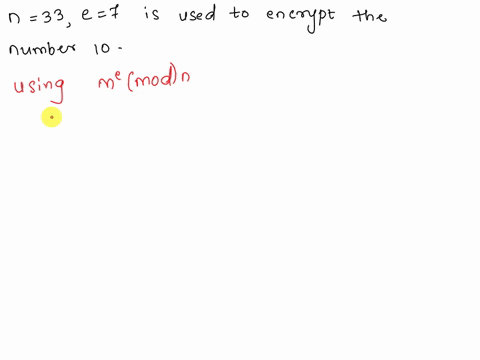 n = 33, e = 7 is used to encrypt the
number 10.
using m^e (mod) n